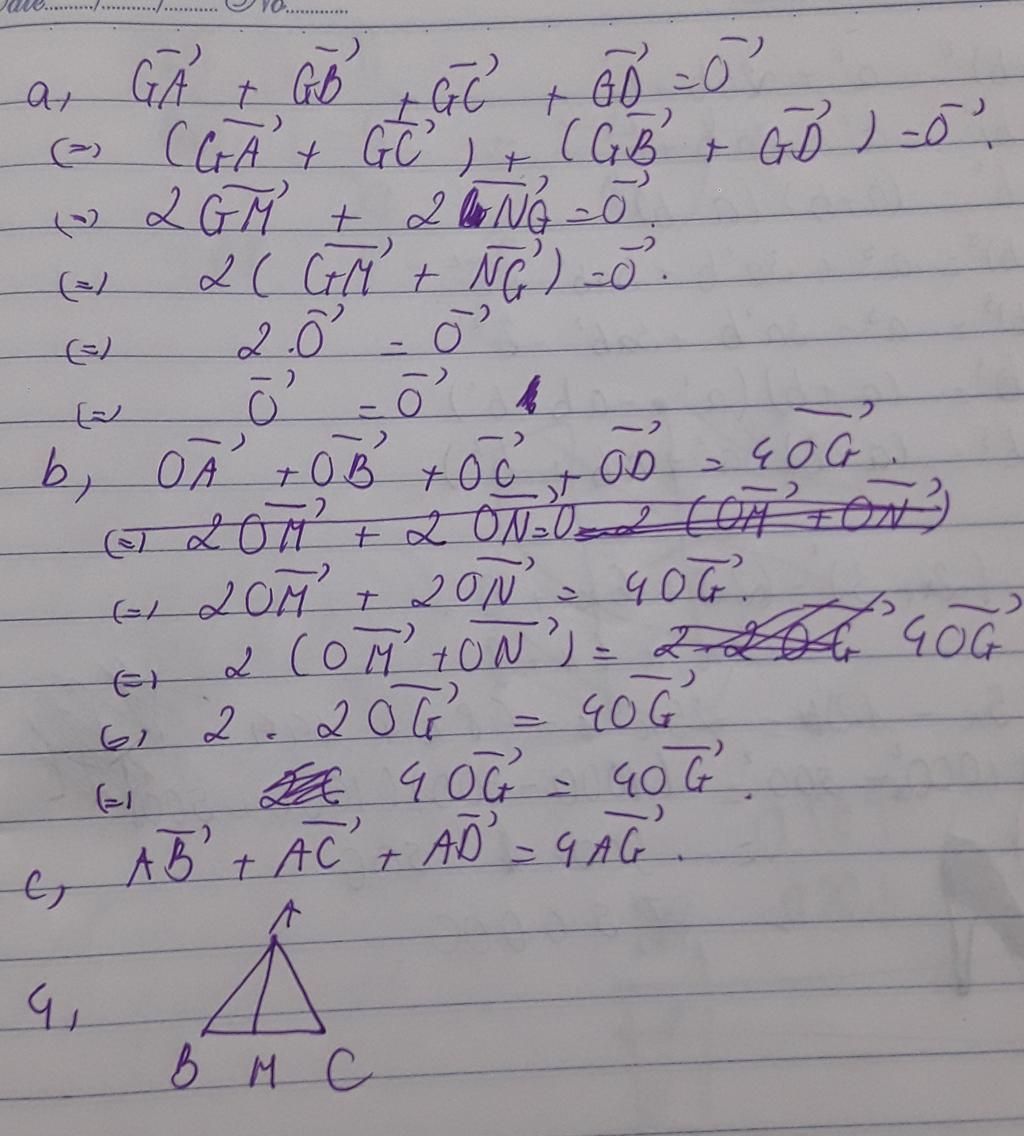 Date........./........../.......... No..............
a, GA⃗ + GB⃗ + GC⃗ + GD⃗ = O⃗
(=) (GA⃗ + GC⃗) + (GB⃗ + GD⃗) = O⃗.
(=) 2GM⃗ + 2NG⃗ = O⃗.
(=) 2(GM⃗ + NG⃗) = O⃗.
(=) 2.O⃗ = O⃗
(=) O⃗ = O⃗
b, OA⃗ + OB⃗ + OC⃗ + OD⃗ = 4OG⃗.
(=) 2OM⃗ + 2ON⃗ = O = 2(OM⃗ + ON⃗)
(=) 2OM⃗ + 2ON⃗ = 4OG⃗.
(=) 2(OM⃗ + ON⃗) = 2.2OG⃗ 4OG⃗
(=) 2.2OG⃗ = 4OG⃗
(=) 4OG⃗ = 4OG⃗.
c, AB⃗ + AC⃗ + AD⃗ = 4AG⃗.
A
4,
B M C